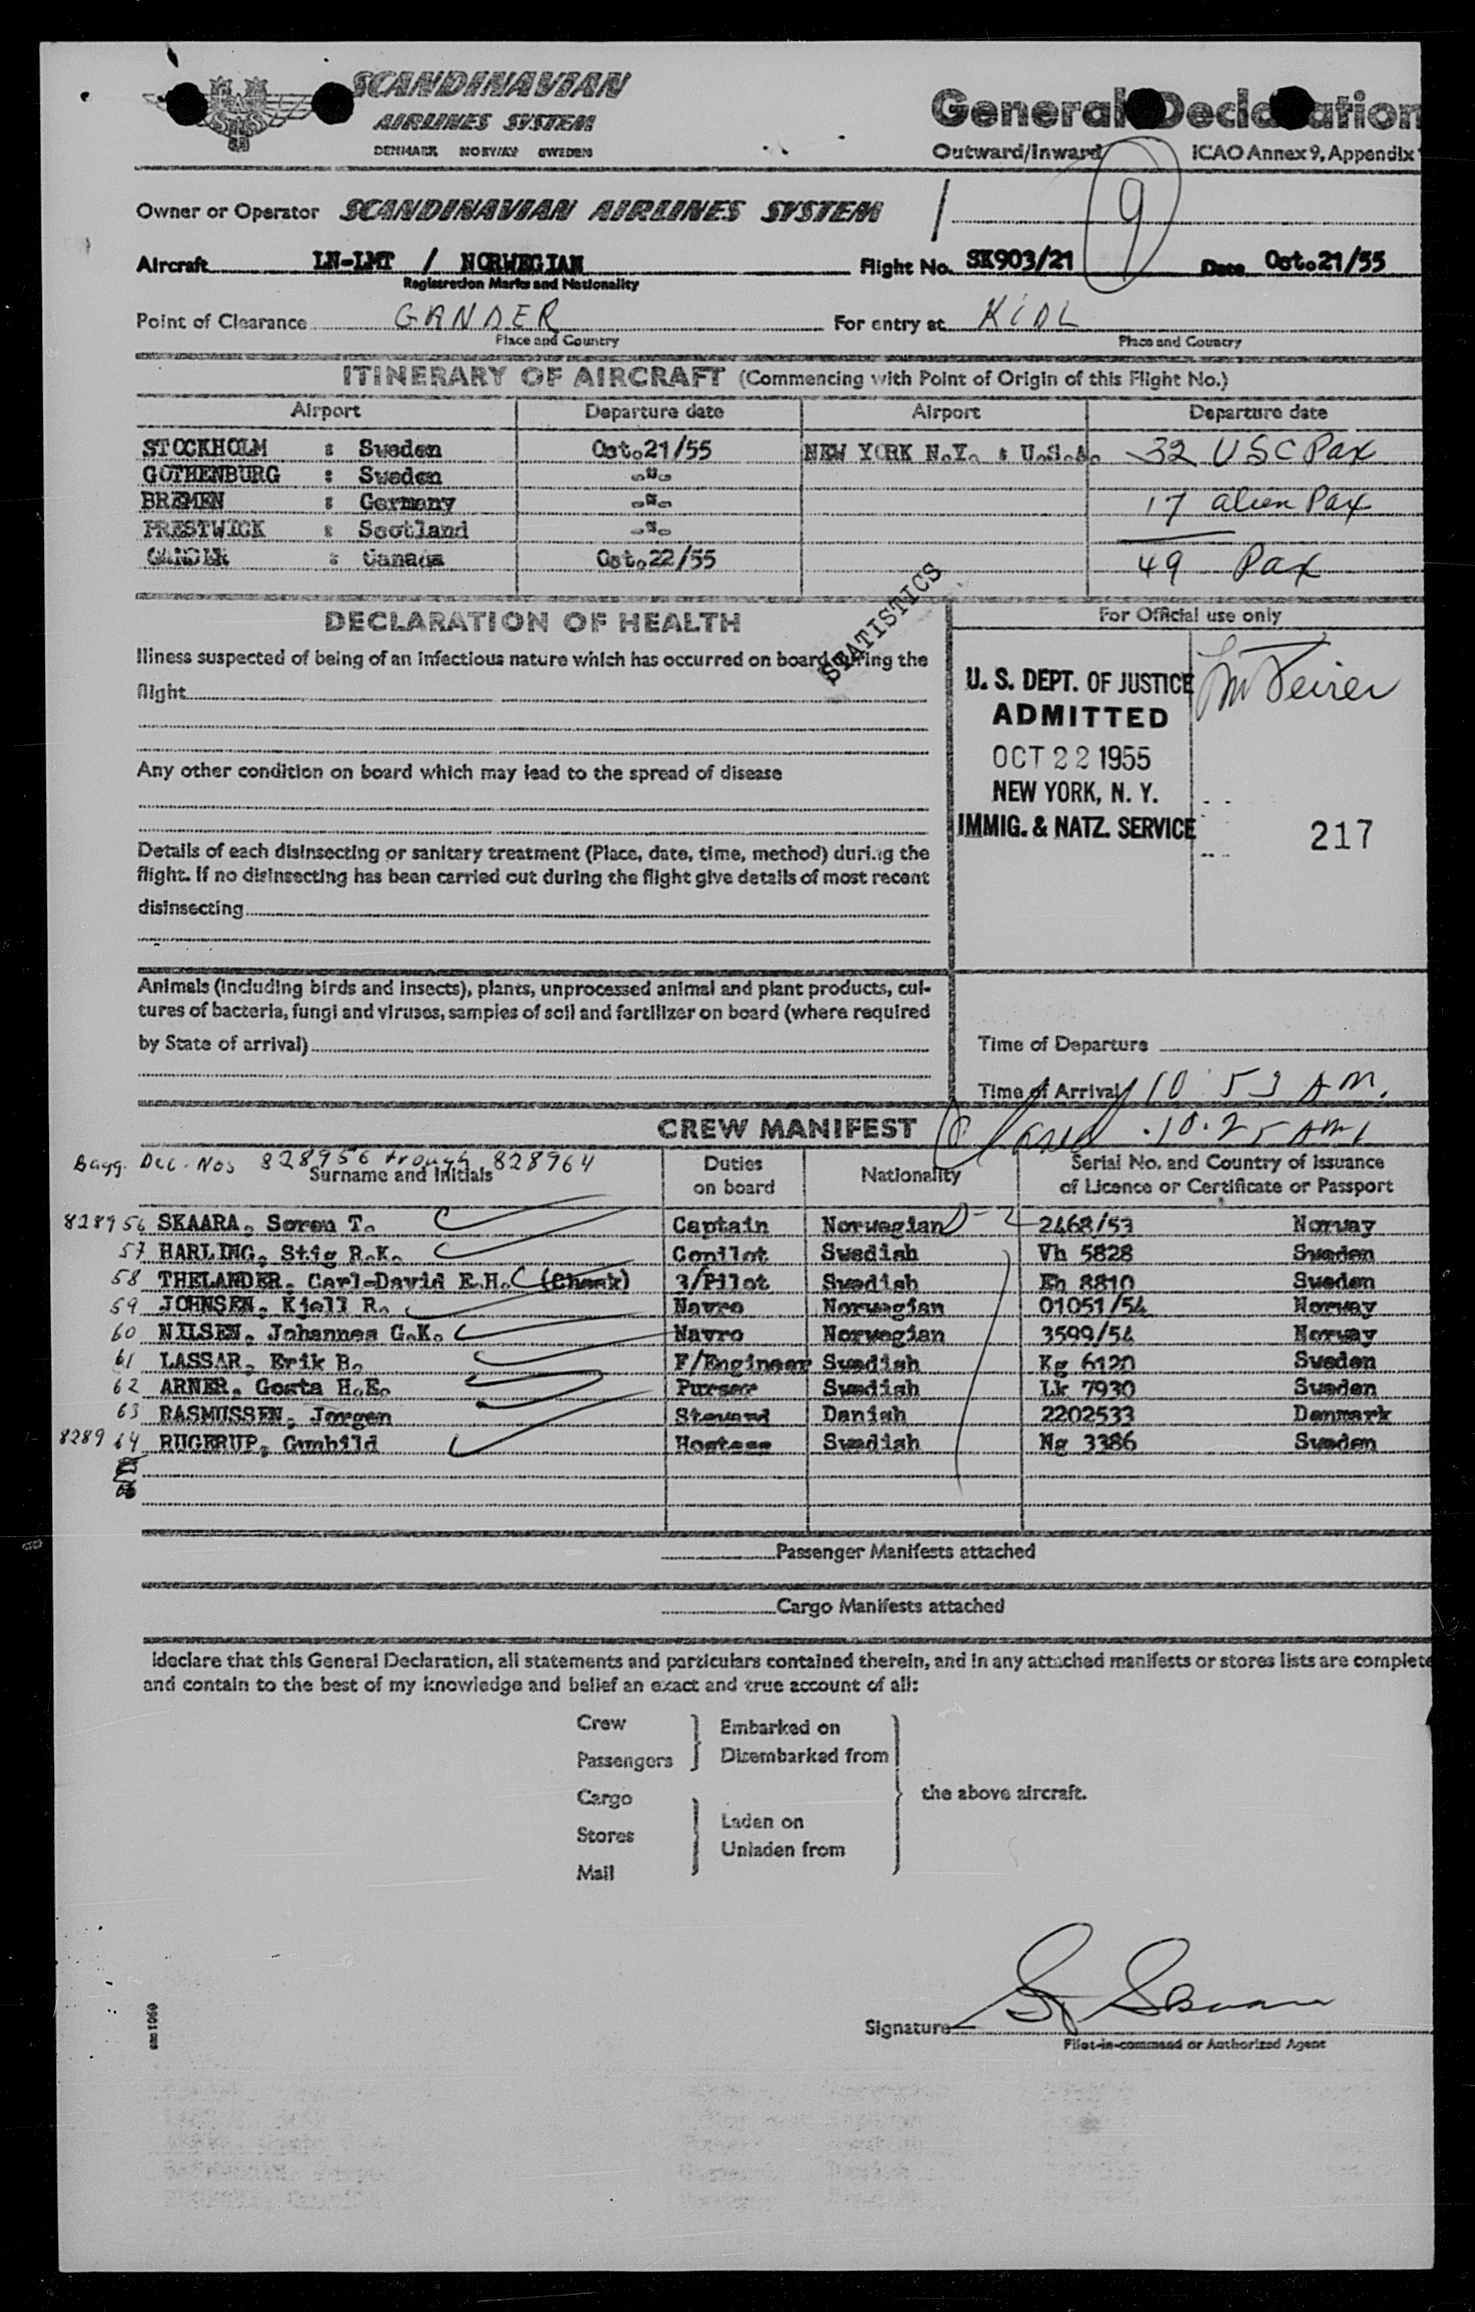 SCANDINAVIAN
AIRLINES SYSTEM
DENMARK NORWAY SWEDEN
General Declaration
Outward/Inward ICAO Annex 9, Appendix
9
Owner or Operator SCANDINAVIAN AIRLINES SYSTEM
Aircraft LN-LMT / NORWEGIAN Flight No. SK903/21 Date Oct.21/55
Registration Marks and Nationality
Point of Clearance GANDER For entry at KIDL
Place and Country Place and Country
ITINERARY OF AIRCRAFT (Commencing with Point of Origin of this Flight No.)
Airport Departure date Airport Departure date
STOCKHOLM : Sweden Oct.21/55 NEW YORK N.Y. : U.S.A. 32 USC Pax
GOTHENBURG : Sweden -"-
BREMEN : Germany -"- 17 alien Pax
PRESTWICK : Scotland -"-
GANDER : Canada Oct.22/55 49 Pax
STATISTICS
DECLARATION OF HEALTH
For Official use only
Illness suspected of being of an infectious nature which has occurred on board during the
flight
U. S. DEPT. OF JUSTICE
ADMITTED
OCT 22 1955
NEW YORK, N. Y.
IMMIG. & NATZ. SERVICE
217
Any other condition on board which may lead to the spread of disease
Details of each disinsecting or sanitary treatment (Place, date, time, method) during the
flight. If no disinsecting has been carried out during the flight give details of most recent
disinsecting
Animals (including birds and insects), plants, unprocessed animal and plant products, cul-
tures of bacteria, fungi and viruses, samples of soil and fertilizer on board (where required
by State of arrival)
Time of Departure
Time of Arrival 10 53 AM.
CREW MANIFEST
Bagg. Dec. Nos 828956 trough 828964
Surname and Initials Duties on board Nationality Serial No. and Country of Issuance of Licence or Certificate or Passport
828956 SKAARA, Soren T. Captain Norwegian D-2 2468/53 Norway
57 HARLING, Stig R.K. Copilot Swedish Vh 5828 Sweden
58 THELANDER, Carl-David E.H. (Check) 3/Pilot Swedish Eh 8810 Sweden
59 JOHNSEN, Kjell R. Navro Norwegian 01051/54 Norway
60 NILSEN, Johannes G.K. Navro Norwegian 3599/54 Norway
61 LASSAR, Erik B. F/Engineer Swedish Kg 6120 Sweden
62 ARNER, Gosta H.E. Purser Swedish Lk 7930 Sweden
63 RASMUSSEN, Jorgen Steward Danish 2202533 Denmark
828964 RUGERUP, Gunhild Hostess Swedish Ng 3386 Sweden
Passenger Manifests attached
Cargo Manifests attached
I declare that this General Declaration, all statements and particulars contained therein, and in any attached manifests or stores lists are complete
and contain to the best of my knowledge and belief an exact and true account of all:
Crew
Passengers
Embarked on
Disembarked from
Cargo
Stores
Mail
Laden on
Unladen from
the above aircraft.
Signature S. Skaara
Pilot-in-command or Authorized Agent